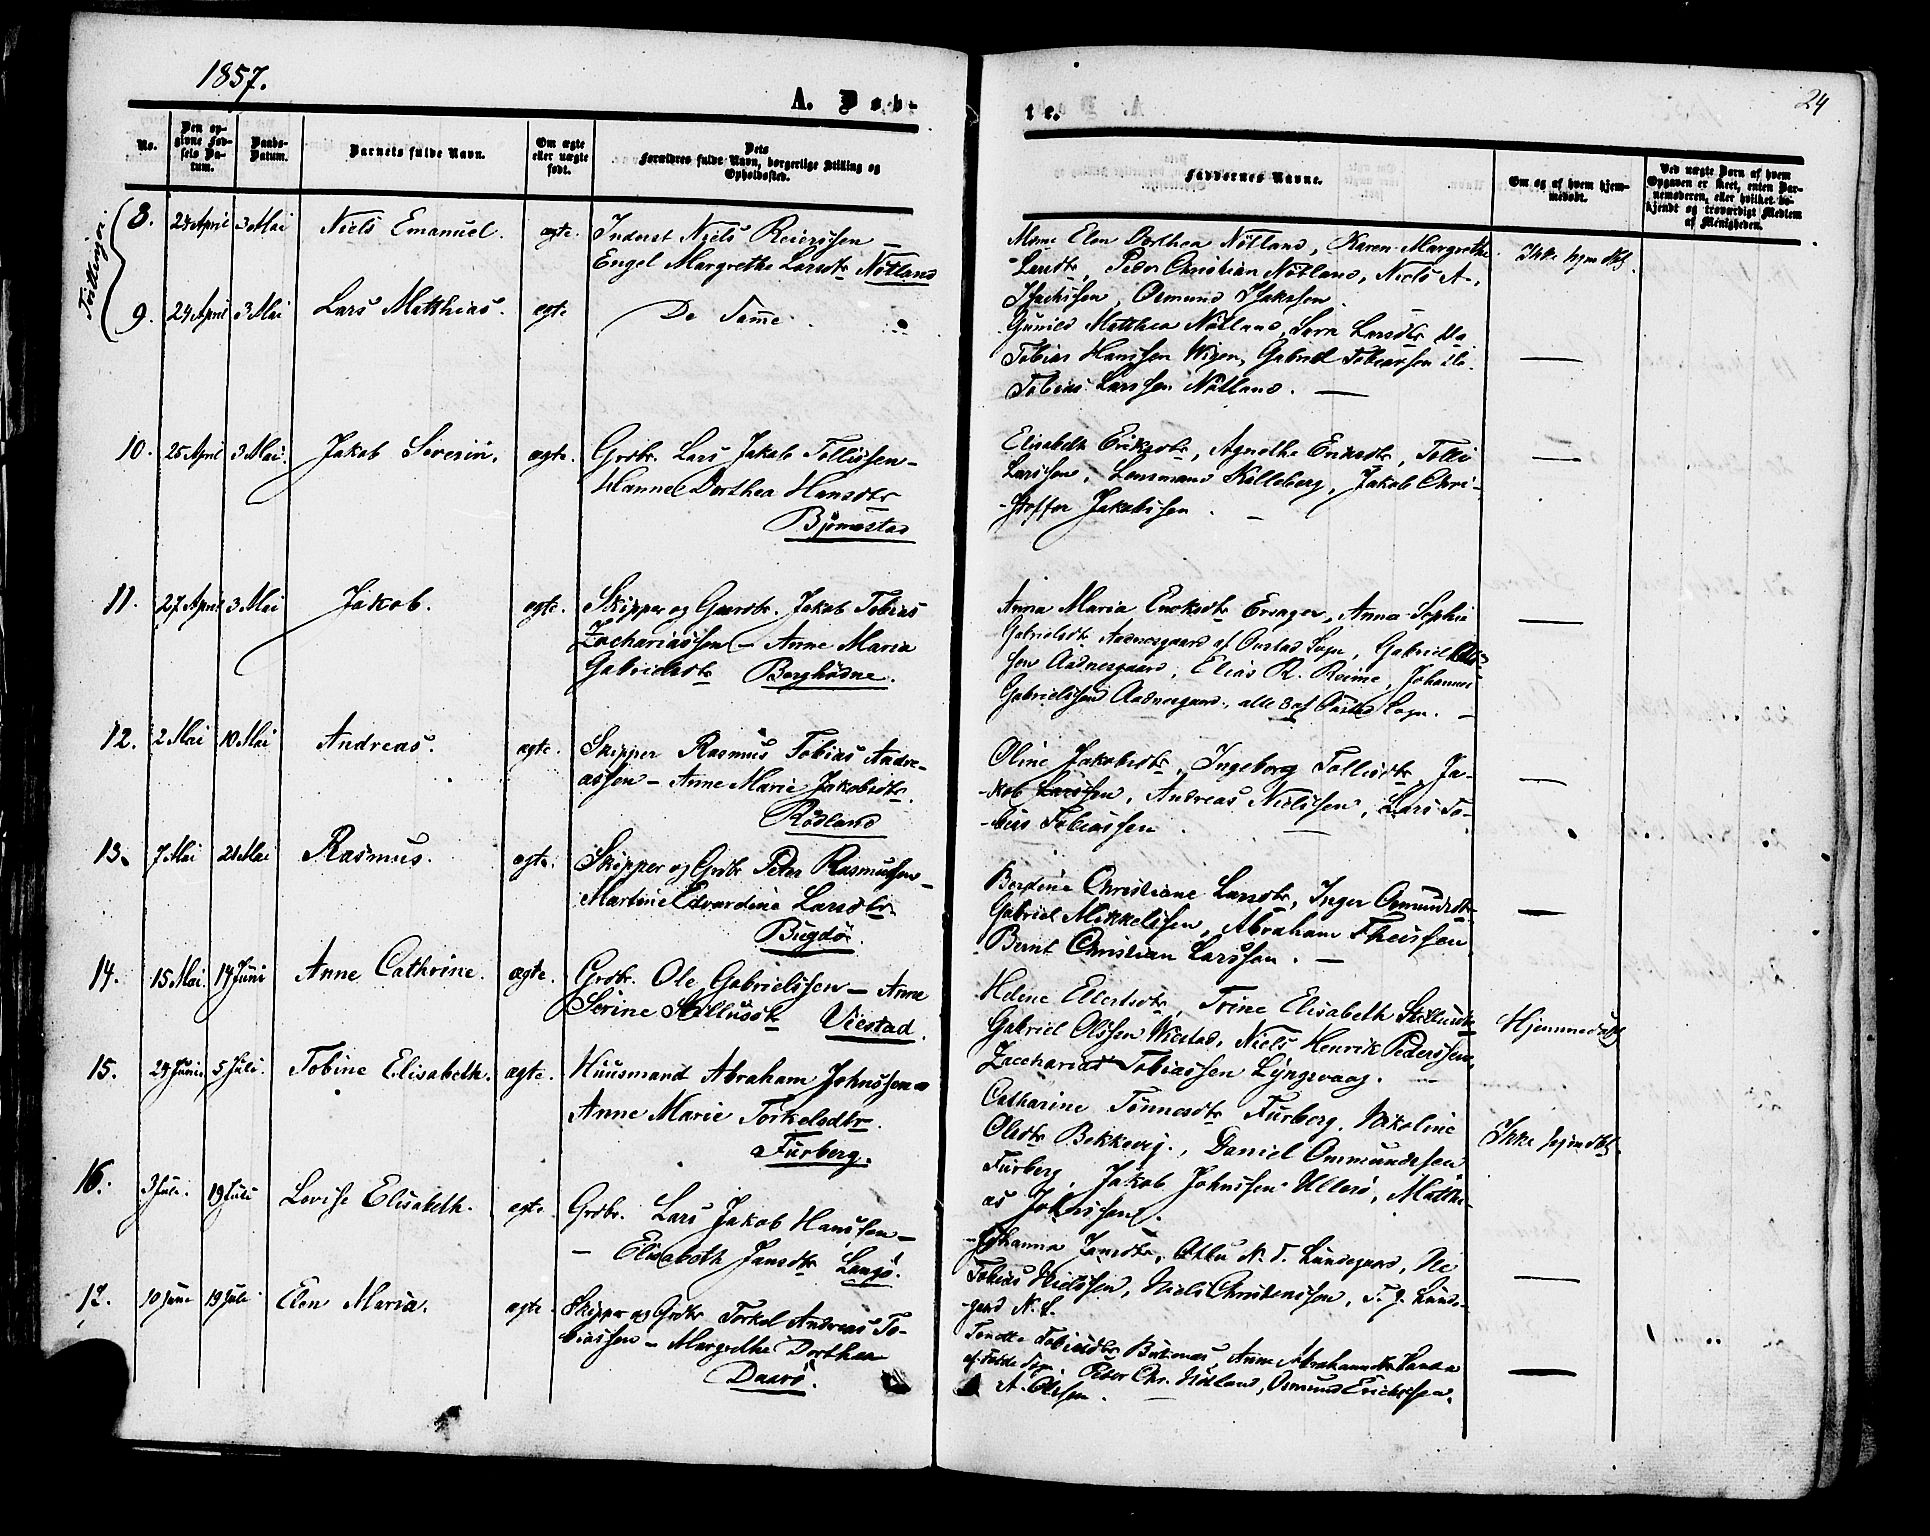 1857.
A. Døb-
te.
24
No.
Den op-
givne Fød-
sels Da-
tum.
Daabs-
Datum.
Barnets fulde Navn.
Om ægte
eller uægte
født.
Dets
Forældres fulde Navn, borgerlige Stilling og
Opholdssted.
Faddernes Navne.
Om og af hvem hjem-
medøbt.
Ved uægte Børn af hvem
Opgaven er skeet, enten Bar-
nemoderen, eller hvilket be-
kjendt og troværdigt Medlem
af Menigheden.
Tvillinger
8. 24 April 3 Mai Niels Emanuel. ægte. Inderst Niels Reierssen —
Engel Margrethe Larsdtr Nötland
Elen Dorthea Nötland, Karen Margrethe
Larsdtr, Peder Christian Nötland, Niels A.
Osmund
Ikke hjemdbt.
9. 24 April 3 Mai Lars Matthias. ægte. De Samme.
Gunild Matthea Nötland, Larsdtr
Tobias Hanssen Wigen, Gabriel Tobiassen
Tobias Larssen Nötland. —
—
10. 25 April 3 Mai. Jakob Severin. ægte. Grdbr. Lars Jakob Tollissen —
Hanne Dorthea Hansdtr
Bjørnestad
Elisabeth Eriksdtr, Agnethe Eriksdtr, Tolli
Larssen, Lensmand Källeberg, Jakob Chri-
-stoffer Jakobssen.
—
11. 27 April 3 Mai Jakob. ægte. Skipper og Gaardbr. Jakob Tobias
Zachariassen — Anne Maria
Gabrielsdtr Berghödne.
Anna Maria Ersager, Anna Sophie
Gabrielsdtr Aadnesgaard af Sogn, Gabriel
Aadnesgaard, Elias R. Reime, Johannes
Gabrielssen Aadnesgaard, alle 3 af Sogn. —
—
12. 2 Mai 10 Mai Andreas. ægte. Skipper Rasmus Tobias Andre-
assen — Anne Marie Jakobsdtr.
Rödland
Oline Jakobsdtr, Ingeborg Tollisdtr, Ja-
-kob Larssen, Andreas Nielssen, Lars To-
-bias Tobiassen.
—
13. 7 Mai 21 Mai Rasmus. ægte. Skipper og Grdbr Peter Rasmussen —
Martine Edvardine Larsdtr.
Bugdö.
Berdine Christiane Larsdtr, Inger Osmundsdtr
Gabriel Mikkelssen, Abraham Theissen,
Bernt Christian Larssen. —
—
14. 15 Mai 14 Juni Anne Cathrine. ægte. Grdbr. Ole Gabrielssen — Anne
Serine Viestad.
Helene Trine Elisabeth
Gabriel Olssen Wiestad, Niels Henrik Pederssen,
Zacharias Tobiassen Lyngsvaag. —
Hjemmedøbt
15. 24 Juni 5 Juli. Tobine Elisabeth. ægte. Huusmand Abraham Johnssen —
Anne Marie Torkelsdtr.
Furberg.
Catharine Tönnesdtr Furberg, Nikoline
Olsdtr Bekkevig, Daniel Ommundssen
Furberg, Jakob Johnssen Ullerö, Matthi-
as Johnssen.
Ikke hjemdbt.
16. 3 Juli. 19 Juli Lovise Elisabeth. ægte. Grdbr. Lars Jakob Hanssen —
— Elisabeth Jansdtr Langö.
Johanna Jansdtr, N. T. Lundegaard,
Tobias Nielssen, Niels Christenssen, T. J. Lunde-
gaard N. L.
—
17. 10 Juni 19 Juli Elen Maria. ægte. Skipper og Grdbr Torkel Andreas To-
biassen — Margrethe Dorthea
Daarö.
Tobiasdtr Anne Abrahamsdtr
Peter Chr. Nötland, Osmund Erichssen,
A. Olssen.
—